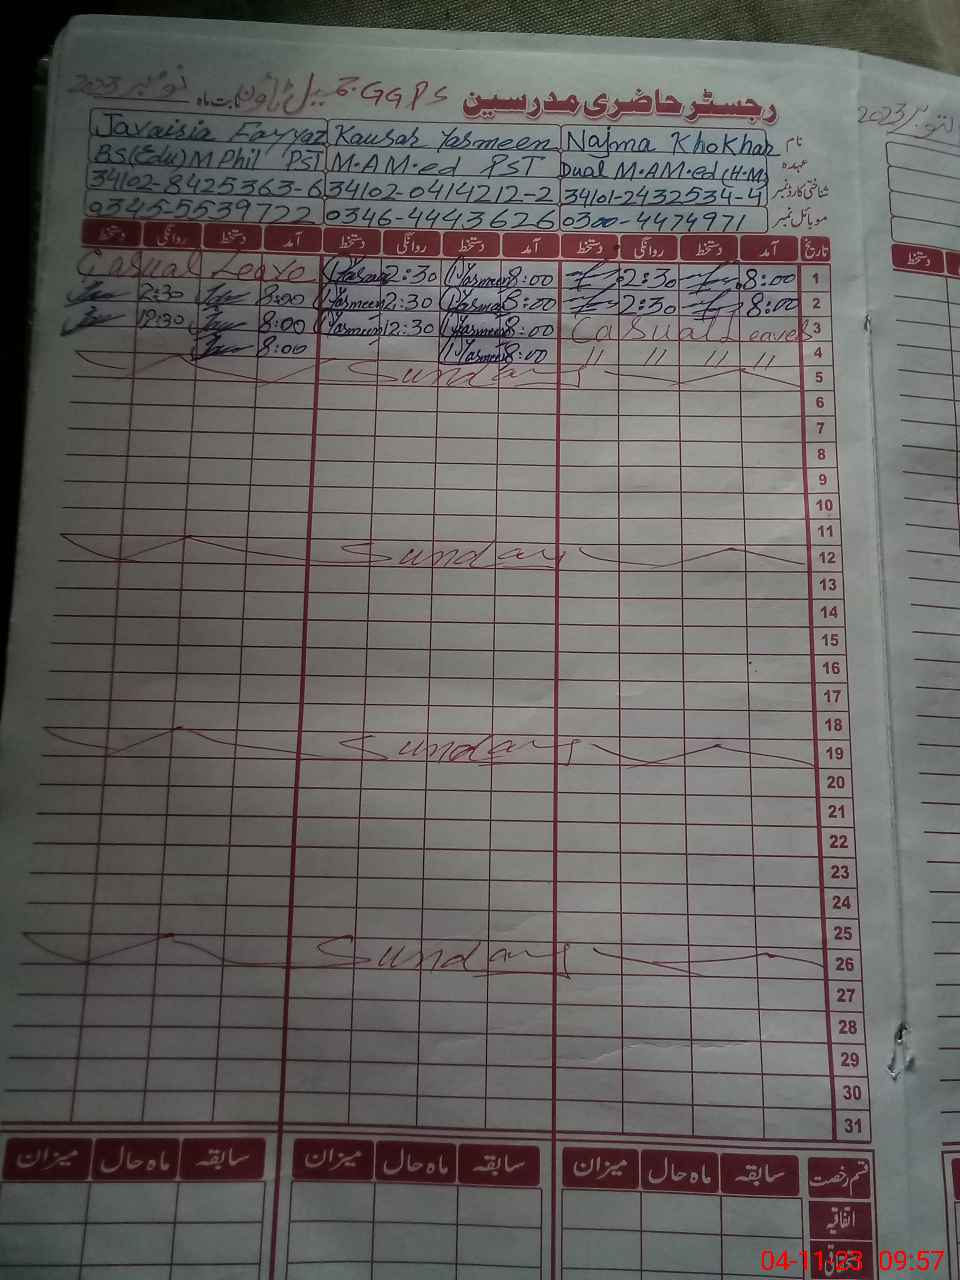 رجسٹر حاضری مدرسین GGPS جمیل ٹاؤن بابت ماہ نومبر 2023
نام Najma Khokhar Kausar Yasmeen Javairia Fayyaz
عہدہ Dual M.A M.ed (H.M) M.A M.ed PST BS(Edu) M Phil PST
شناختی کارڈ نمبر 34101-2432534-4 34102-0414212-2 34102-8425363-6
موبائل نمبر 0300-4474971 0346-4443626 0345-5539722
تاریخ آمد دستخط روانگی دستخط آمد دستخط روانگی دستخط آمد دستخط روانگی دستخط
1 8:00 2:30 8:00 Yasmeen 2:30 Casual Leave
2 8:00 2:30 8:00 Yasmeen 2:30 Yasmeen 8:00 2:30
3 Casual Leaves 8:00 Yasmeen 12:30 Yasmeen 8:00 12:30
4 " " " " 8:00 Yasmeen 8:00
5 Sunday
6
7
8
9
10
11
12 Sunday
13
14
15
16
17
18
19 Sunday
20
21
22
23
24
25
26 Sunday
27
28
29
30
31
قسم رخصت سابقہ ماہ حال میزان سابقہ ماہ حال میزان سابقہ ماہ حال میزان
اتفاقیہ
04-11-23 09:57
اکتوبر 2023
دستخط